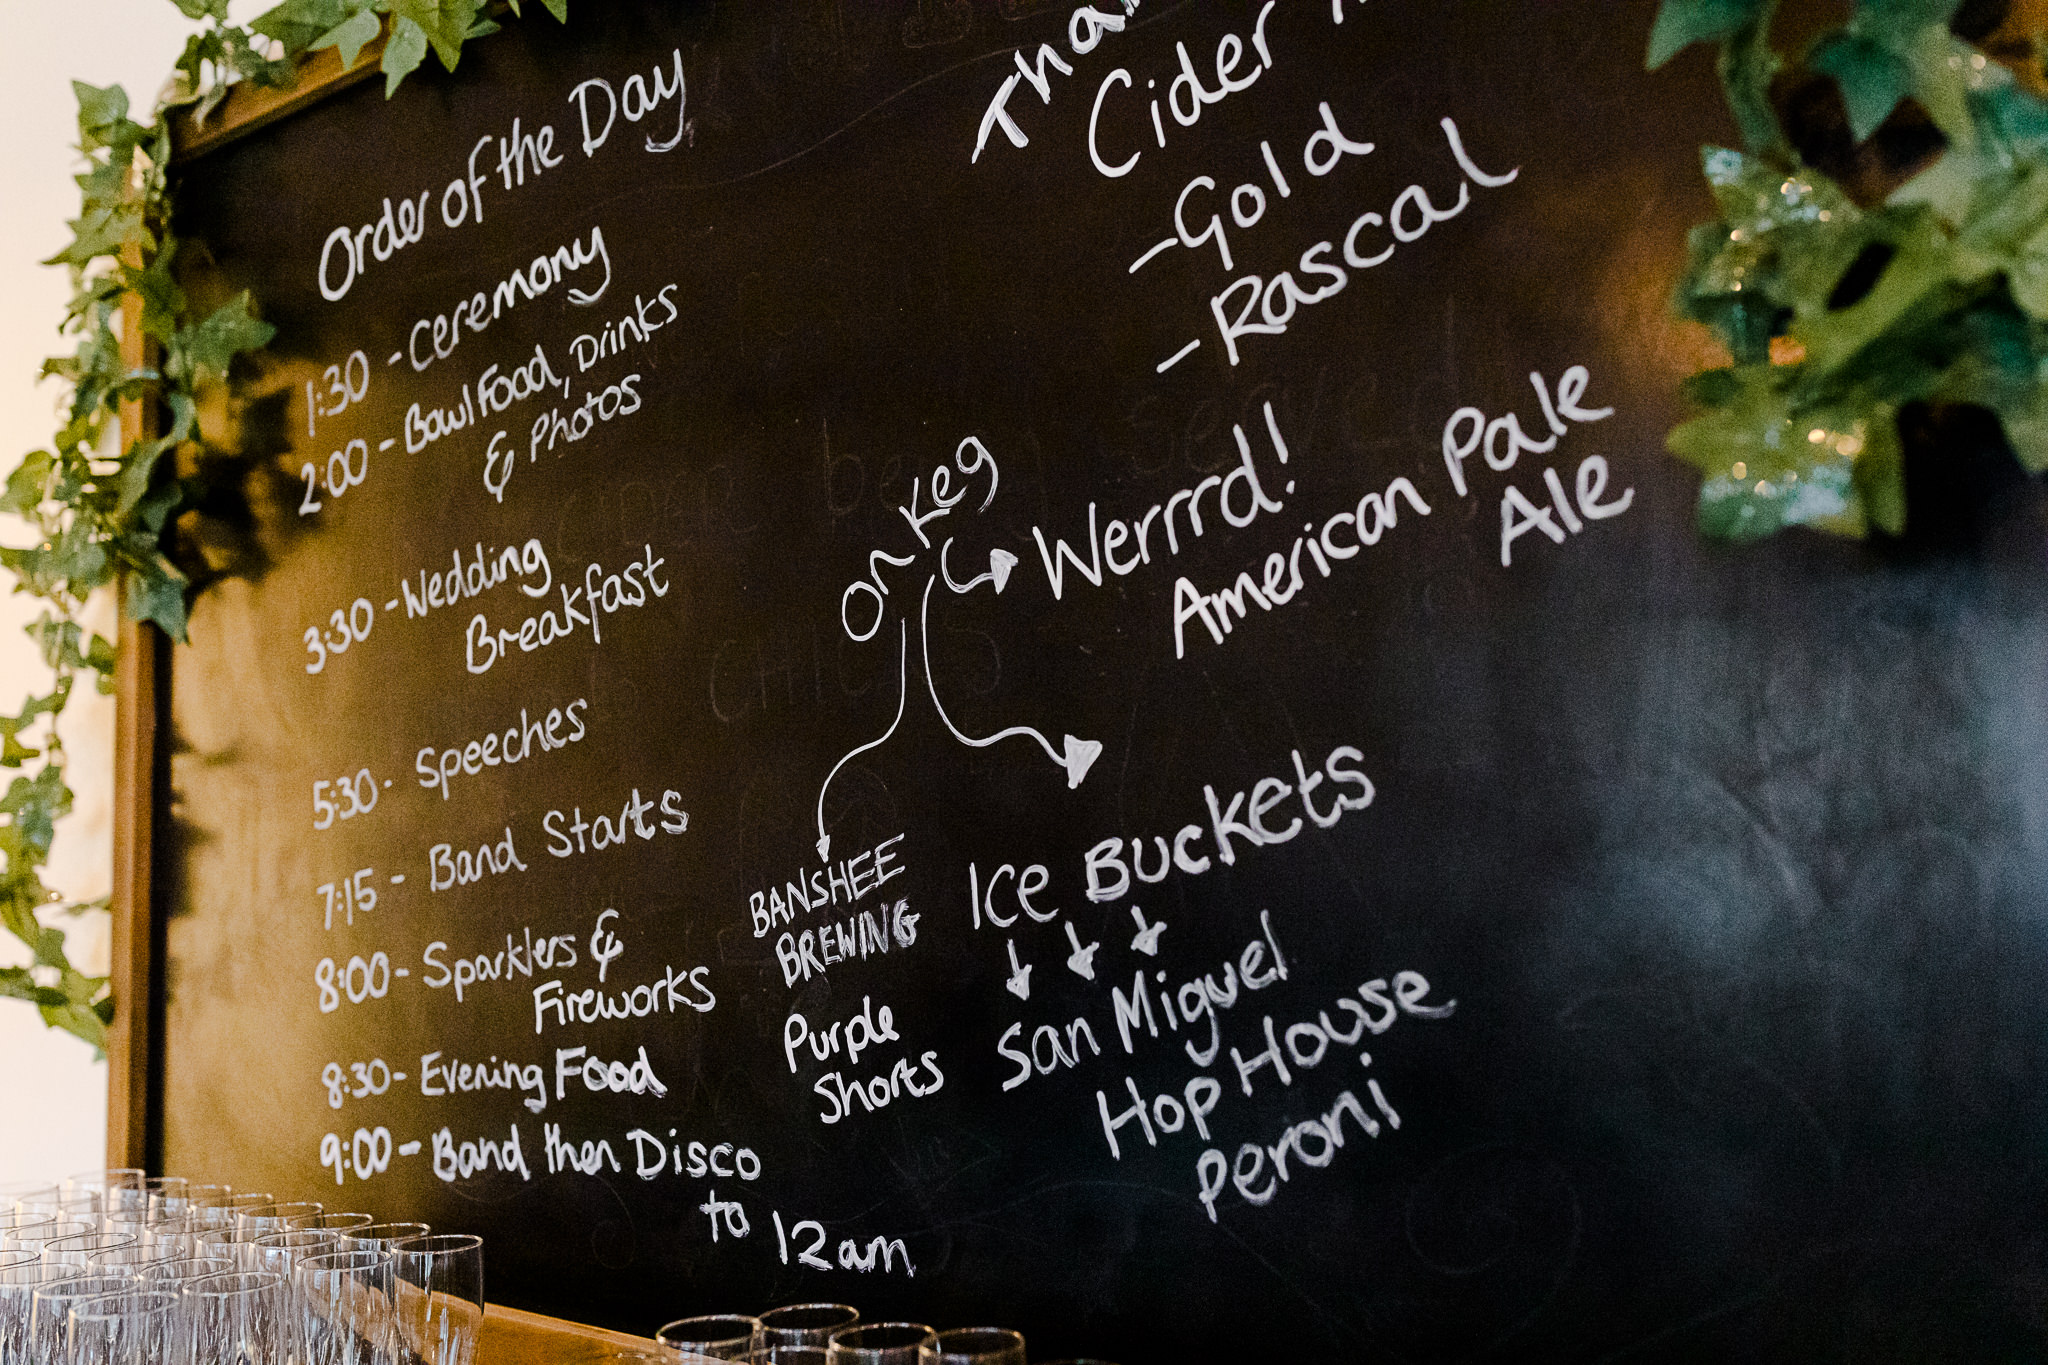 Order of the Day
1:30 - Ceremony
2:00 - Bowl Food, Drinks
& Photos
3:30 - Wedding
Breakfast
5:30 - Speeches
7:15 - Band Starts
8:00 - Sparklers &
Fireworks
8:30 - Evening Food
9:00 - Band then Disco
to 12am
Cider
- Gold
- Rascal
On Keg
Werrrd!
American Pale
Ale
BANSHEE
BREWING
Purple
Shorts
Ice Buckets
San Miguel
Hop House
Peroni